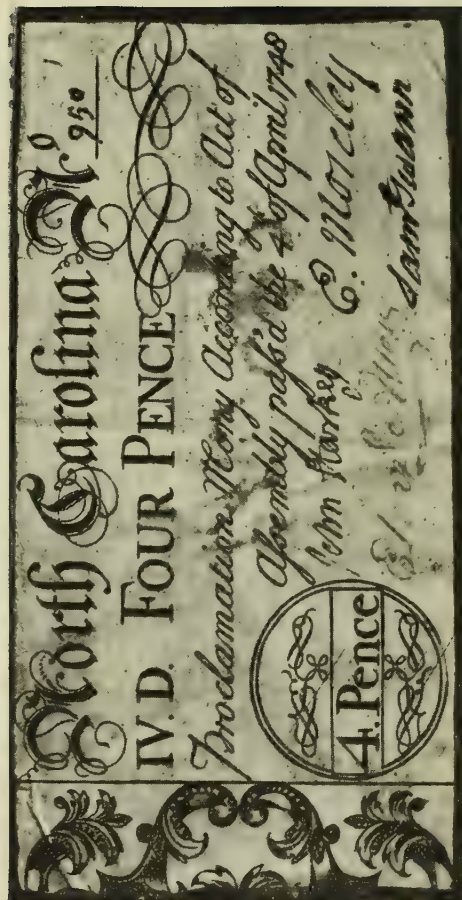 North Carolina No 950
IV. D. FOUR PENCE
Proclamation Mony According to Act of
Assembly pass'd the 4 of April 1748
John Starkey E. Moseley
Sam Swann
4. Pence